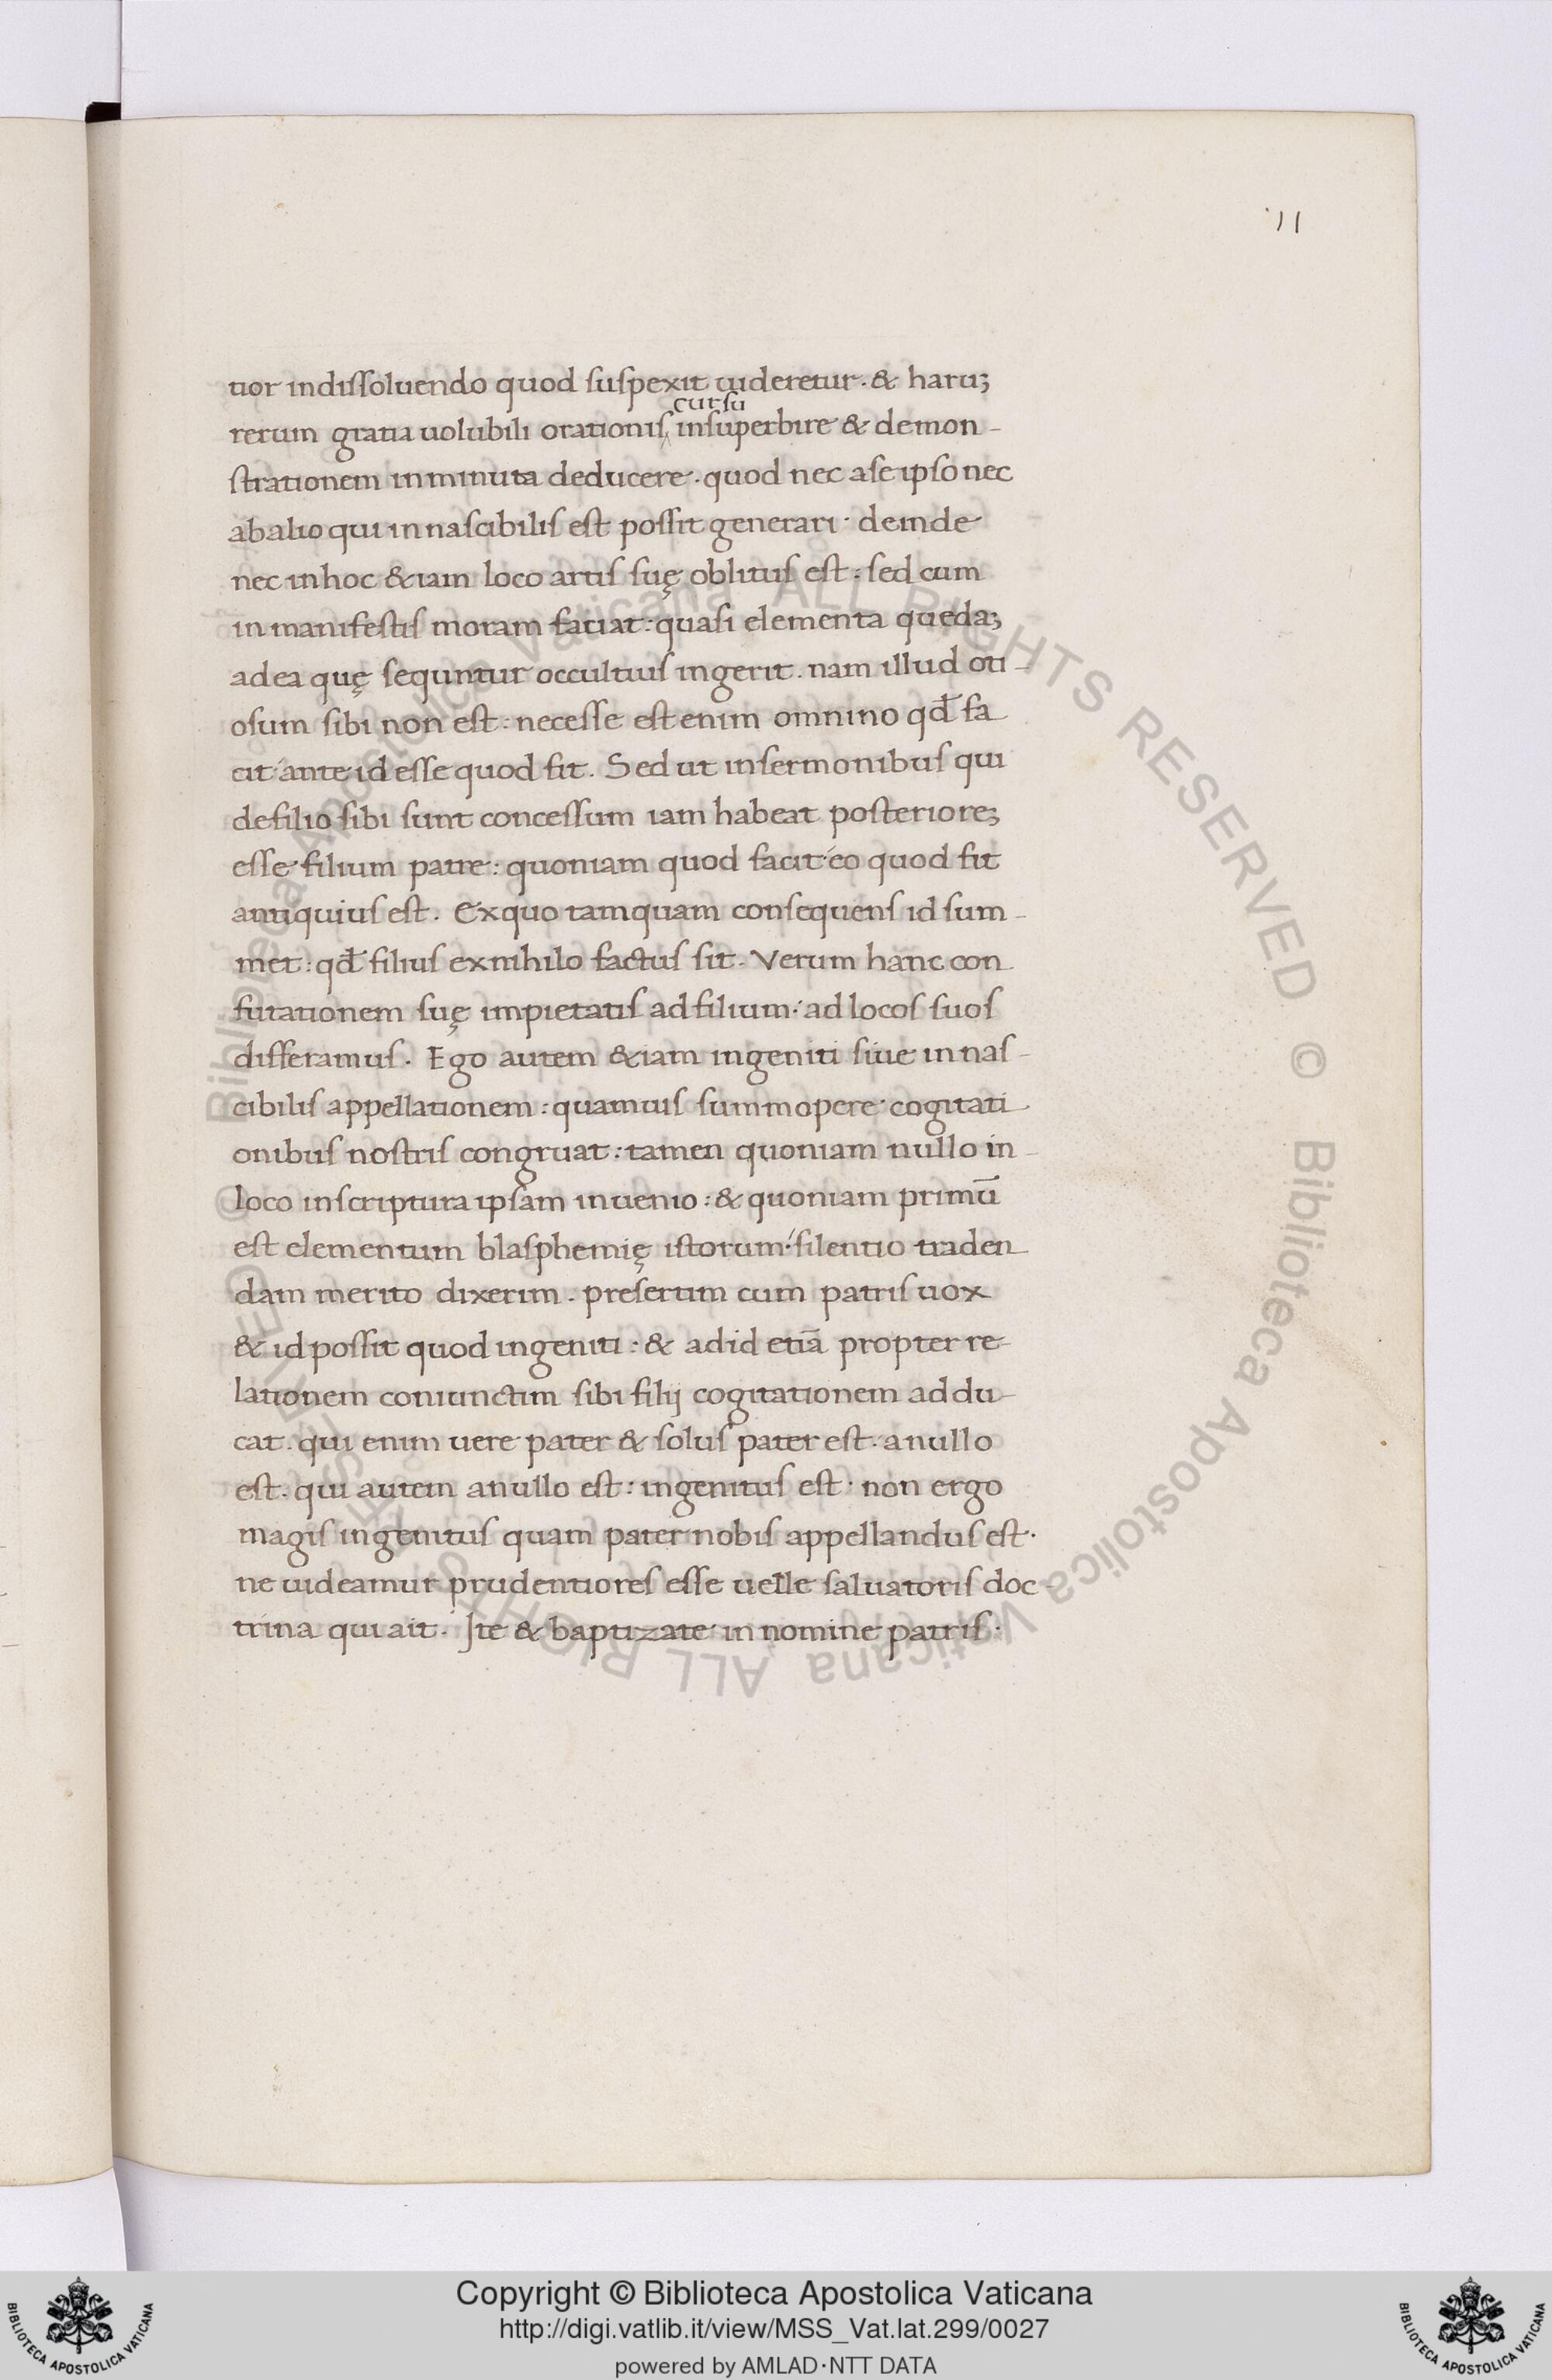 11
tior indissoluendo quod suspexit uideretur. & haruꝫ
cursu
rerum gratia uolubili orationis insuperbire & demon-
strationem in minuta deducere. quod nec a se ipso nec
ab alio qui innascibilis est possit generari. deinde
nec in hoc &iam loco artis suę oblitus est: sed cum
in manifestis moram faciat: quasi elementa quedaꝫ
ad ea quę sequntur occultius ingerit. nam illud oti-
osum sibi non est: necesse est enim omnino qđ fa
cit ante id esse quod fit. Sed ut in sermonibus qui
de filio sibi sunt concessum iam habeat posterioreꝫ
esse filium patre: quoniam quod facit eo quod fit
antiquius est. Ex quo tamquam consequens id sum-
met: qđ filius ex nihilo factus sit. Verum hanc con
futationem suę impietatis ad filium. ad locos suos
differamus. Ego autem &iam ingeniti siue innas-
cibilis appellationem: quamuis summopere cogitati
onibus nostris congruat: tamen quoniam nullo in-
loco in scriptura ipsam inuenio: & quoniam primū
est elementum blasphemię istorum. silentio traden
dam merito dixerim. presertim cum patris uox
& id possit quod ingeniti: & ad id etiā propter re-
lationem coniunctim sibi filij cogitationem addu-
cat. qui enim uere pater & solus pater est. a nullo
est. qui autem a nullo est: ingenitus est. non ergo
magis ingenitus quam pater nobis appellandus est.
ne uideamur prudentiores esse uelle saluatoris doc-
trina qui ait. Ite & baptizate in nomine patris.
© Biblioteca Apostolica Vaticana ALL RIGHTS RESERVED © Biblioteca Apostolica Vaticana ALL RIGHTS RESERVED
Copyright © Biblioteca Apostolica Vaticana
http://digi.vatlib.it/view/MSS_Vat.lat.299/0027
powered by AMLAD·NTT DATA
BIBLIOTECA APOSTOLICA VATICANA
BIBLIOTECA APOSTOLICA VATICANA